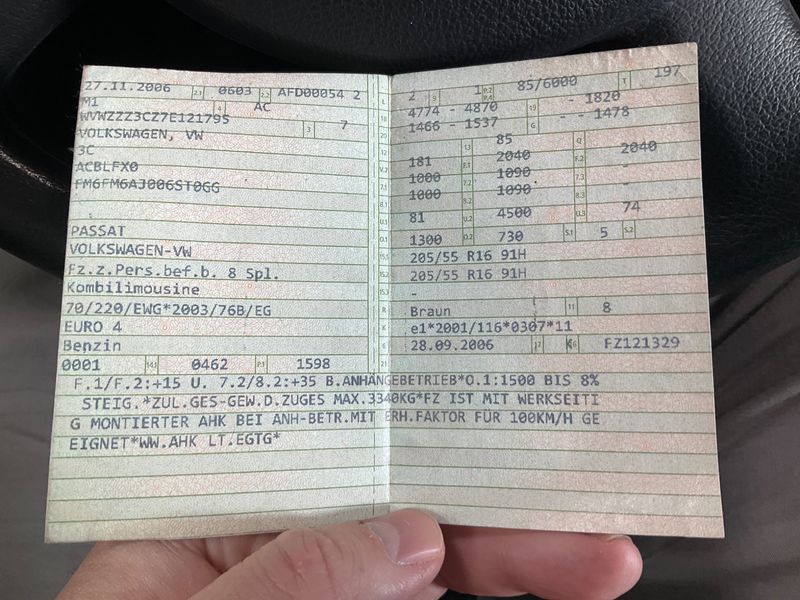 27.11.2006 2.1 0603 2.2 AFD00054 2
M1 4 AC
WVWZZZ3CZ7E121795 3 7
VOLKSWAGEN, VW
3C
ACBLFX0
FM6FM6AJ006ST0GG
PASSAT
VOLKSWAGEN-VW
Fz.z.Pers.bef.b. 8 Spl.
Kombilimousine
70/220/EWG*2003/76B/EG
EURO 4
Benzin
0001 14.1 0462 P.1 1598
L 2 9 1 P.2 P.4 85/6000 T 197
18 4774 - 4870 19 - 1820
20 1466 - 1537 G - - 1478
12 13 85 Q
V.7 181 F.1 2040 F.2 2040
7.1 1000 7.2 1090 7.3 -
8.1 1000 8.2 1090 8.3 -
U.1 81 U.2 4500 U.3 74
O.1 1300 O.2 730 S.1 5 S.2
15.1 205/55 R16 91H
15.2 205/55 R16 91H
15.3 -
R Braun 11 8
K e1*2001/116*0307*11
6 28.09.2006 17 K 16 FZ121329
21
F.1/F.2:+15 U. 7.2/8.2:+35 B.ANHÄNGEBETRIEB*O.1:1500 BIS 8%
STEIG.*ZUL.GES-GEW.D.ZUGES MAX.3340KG*FZ IST MIT WERKSEITI
G MONTIERTER AHK BEI ANH-BETR.MIT ERH.FAKTOR FÜR 100KM/H GE
EIGNET*WW.AHK LT.EGTG*